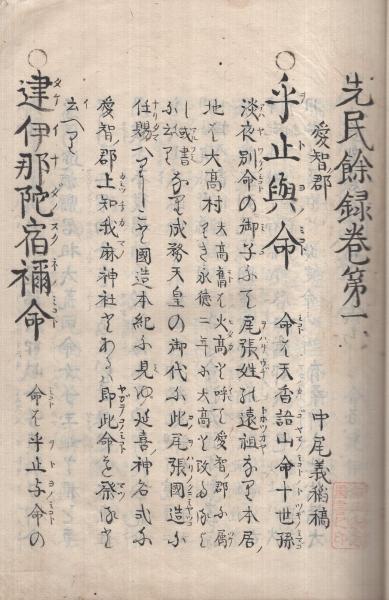 先民餘録卷第一
愛智郡
中尾義稲稿
○乎止與命
命は天香語山命十世孫
淡夜別命の御子にて尾張姓の遠祖なり本居ノ
地は大高村なり
大高舊は火高と呼て愛智郡に属
し
或書
に云
なり成務天皇の御代に此尾張國造に
任賜へりしこと國造本紀に見ゆ延喜神名式に
愛智ノ郡上知我麻神社とある即此命を祭ると
云へり
○建伊那陀宿禰命
命は乎止与命の